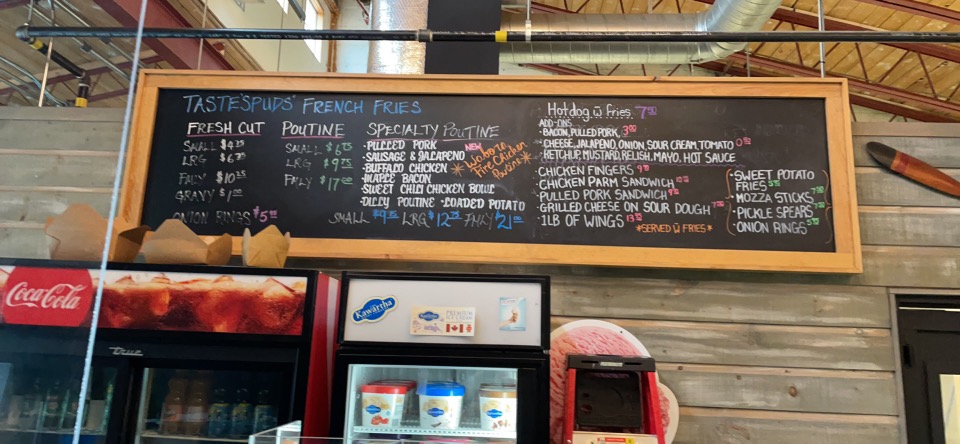 TASTE'SPUDS' FRENCH FRIES
FRESH CUT
SMALL $4.75
LRG $6.75
FMLY $10.25
GRAVY $1.00
ONION RINGS $5.00
POUTINE
SMALL $6.75
LRG $9.75
FMLY $17.00
SPECIALTY POUTINE
• PULLED PORK
• SAUSAGE & JALAPENO
• BUFFALO CHICKEN
• MAPLE BACON
• SWEET CHILI CHICKEN BOWL
• DILLY POUTINE • LOADED POTATO
NEW
Fire Chicken
SMALL $9.75 LRG $12.75 FMLY $21.00
Hotdog w Fries 7.50
ADD-ONS
• BACON, PULLED PORK, 3.00
• CHEESE, JALAPENO, ONION, SOUR CREAM, TOMATO 0.50
• KETCHUP, MUSTARD, RELISH, MAYO, HOT SAUCE
• CHICKEN FINGERS
• CHICKEN PARM SANDWICH
• PULLED PORK SANDWICH
• GRILLED CHEESE ON SOUR DOUGH
• 1LB OF WINGS
*SERVED w FRIES*
• SWEET POTATO
FRIES
• MOZZA STICKS
• PICKLE SPEARS
• ONION RINGS
Coca-Cola
true
Kawartha